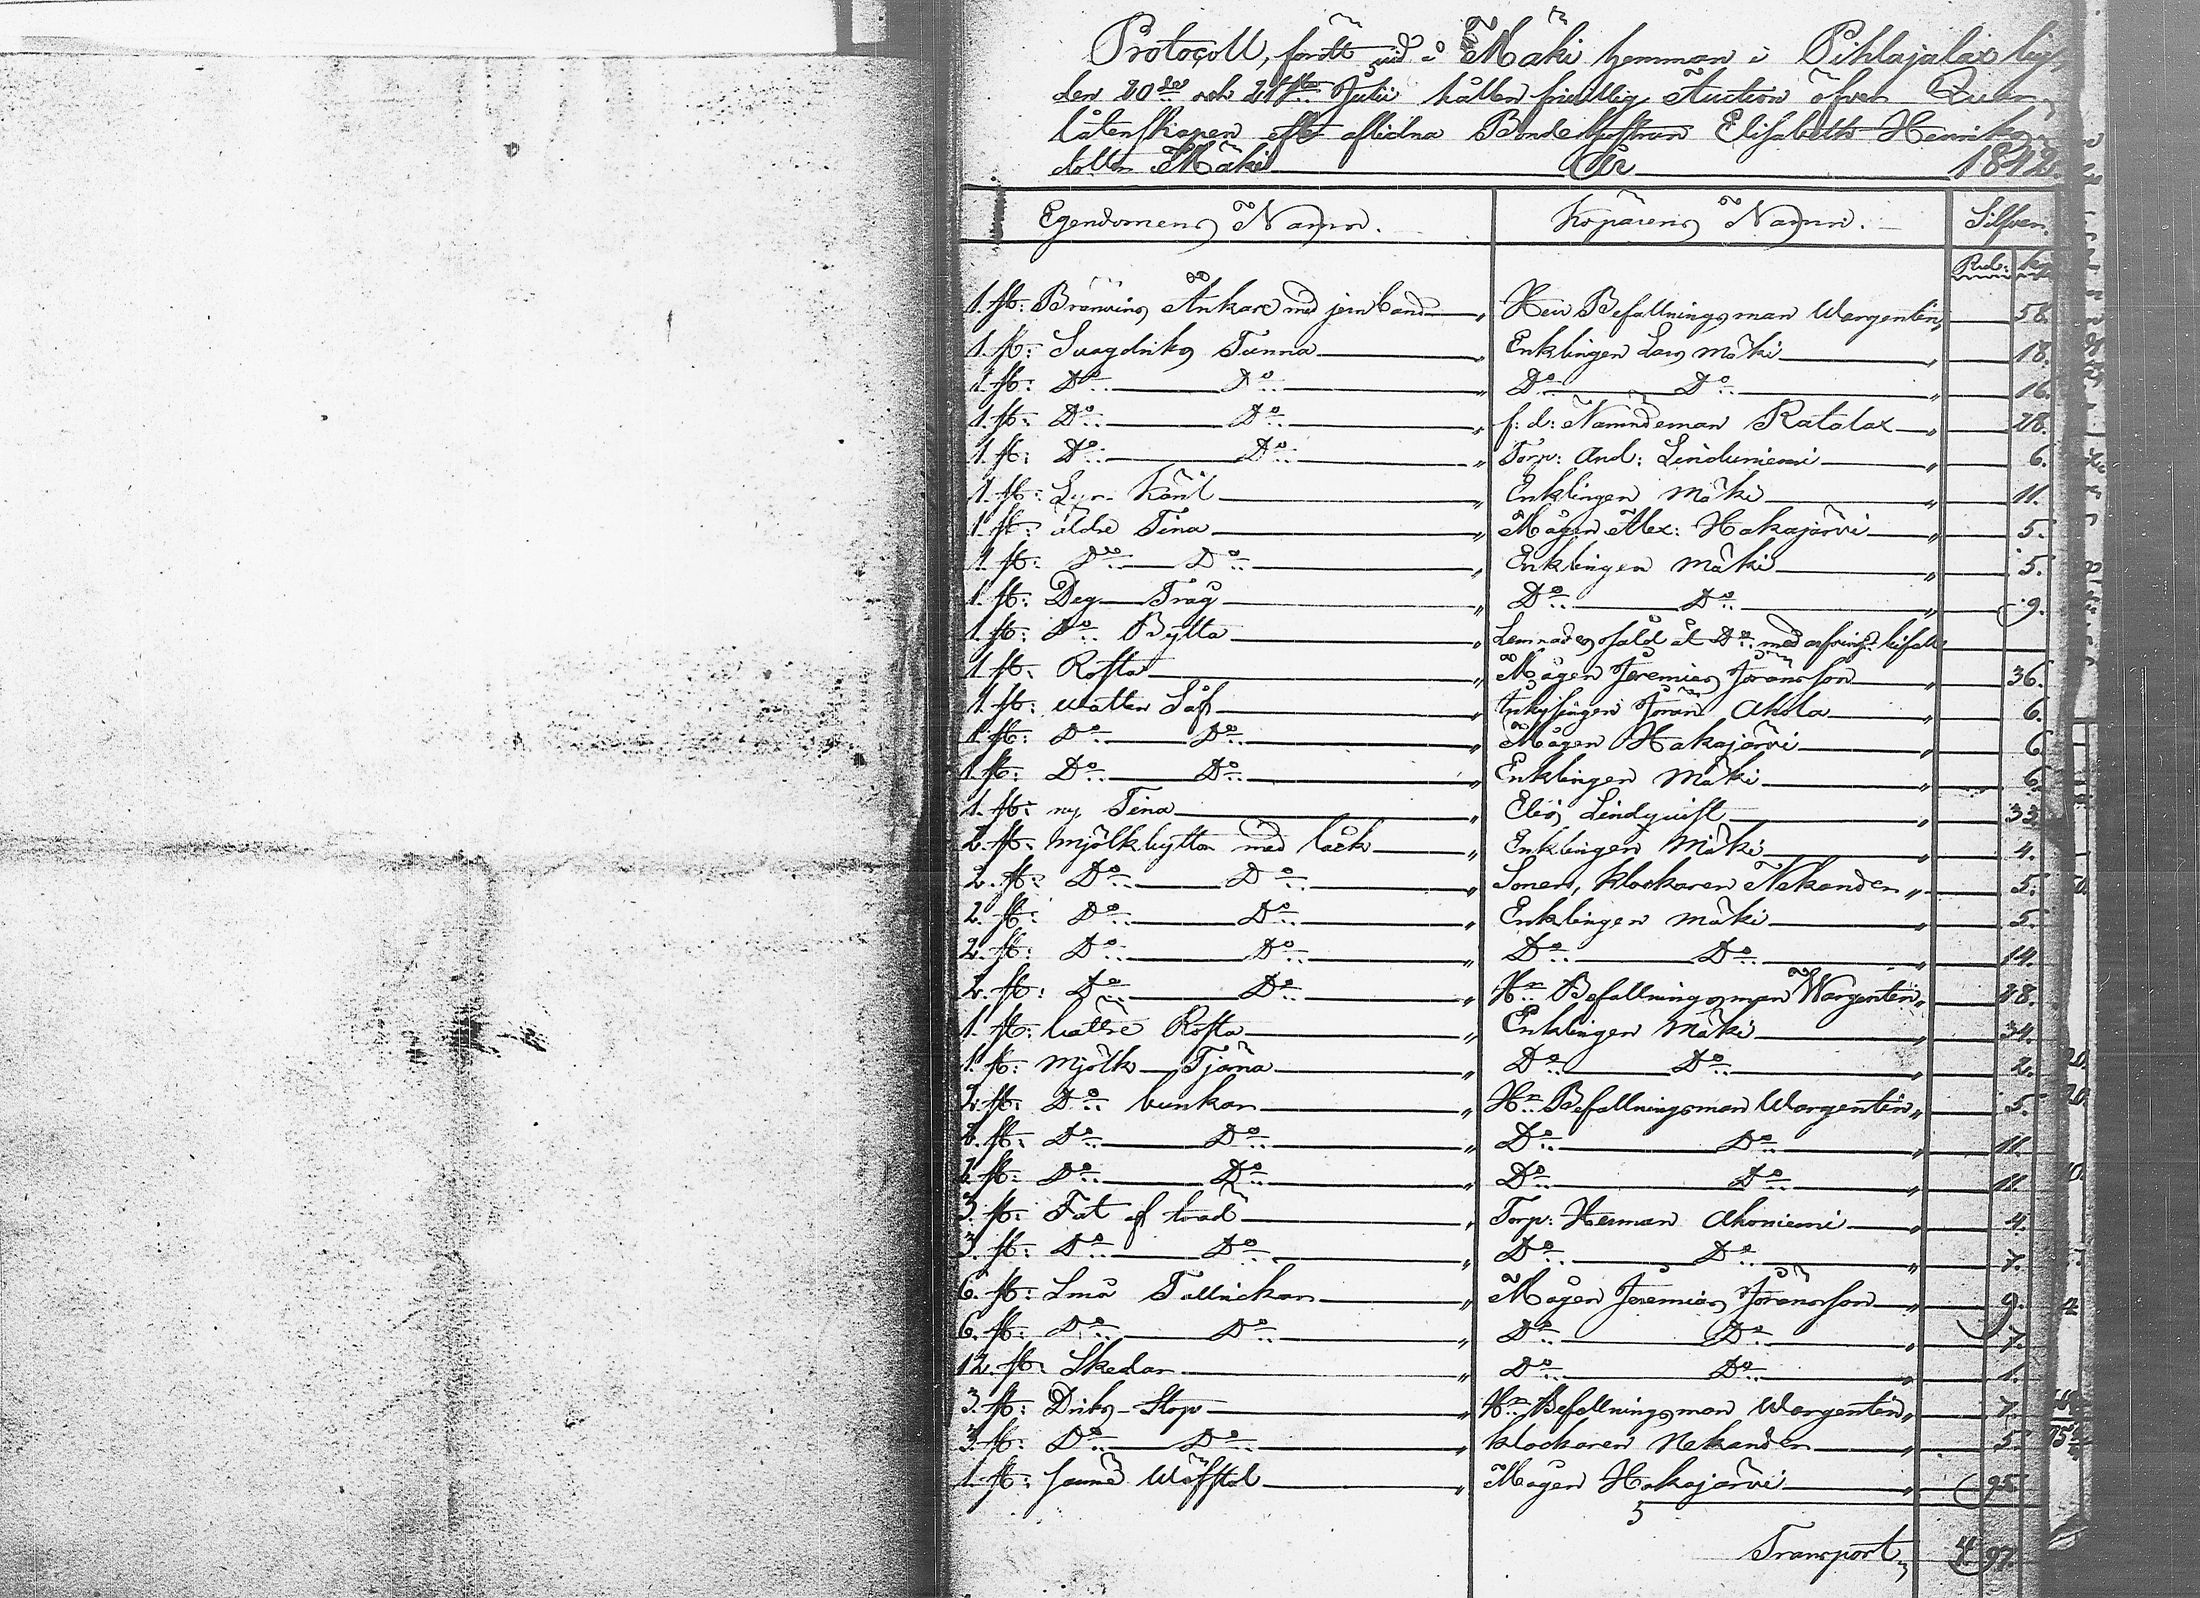 Protocoll, fördt vid å Mäki hemman i Pihlajalax by,
den 20de och 21sta Julii hållen frivillig Auction öfver Qvar-
låtenskapen efter aflidna Bondehustrun Elisabeth Henriks-
dotter Mäki År 1842.
Egendomens Namn. Köparens Namn. Silfver.
Rub: kop
1. st: Bränvins Ankare med jern band Herr Befallningsman Wargentin 58.
1. st: Svagdriks Tunna Enklingen Lars Mäki 18.
1. st: Do Do Do Do 16.
1. st: Do Do f: d: Nämndeman Ratalax 18.
1. st: Do Do Torp: And: Linduniemi 6.
1. st: Käril Enklingen Mäki 11.
1. st: äldre Tina Mågen Alex: Hakajärvi 5.
1. st: Do Do Enklingen Mäki 5.
1. st: Deg Tråg Do Do 9.
1. st: Do Bytta Lemnades osåld åt Do med arfving: bifall
1. st: Rosta Mågen Jeremias Jöransson 36.
1. st: Watten Så Jöran Ahola 6.
1. st: Do Do Mågen Hakajärvi 6.
1. st: Do Do Enklingen Mäki 6.
1. st: ny Tina Elis Lindqvist 33.
2. st: mjölkbyttor med lock Enklingen Mäki 4.
2. st: Do Do Sonen, klockaren Nekander 5.
2. st: Do Do Enklingen Mäki 5.
2. st: Do Do Do Do 14.
2. st: Do Do Hr Befallningsman Wargentin 18.
1. st: bättre Rosta Enklingen Mäki 34.
1. st: Mjölk Tjärna Do Do 2.
st: Do bunkar Hr Befallningsman Wargentin 5.
st: Do Do Do Do 11.
st: Do Do Do Do 11.
3. st: Fat af träd Torp: Herman Ahoniemi 4.
3. st: Do Do Do Do 7.
6. st: Små Tallrickar Mågen Jeremias Jöransson 9.
6. st: Do Do Do Do 7.
12. st: Skedar Do Do 1.
3. st: Driks-Stop Hr Befallningsman Wargentin 7.
3. st: Do Do klockaren Nekander 5.
1. st: Wäfstol Mågen Hakajärvi 95.
Transport, 4. 97.